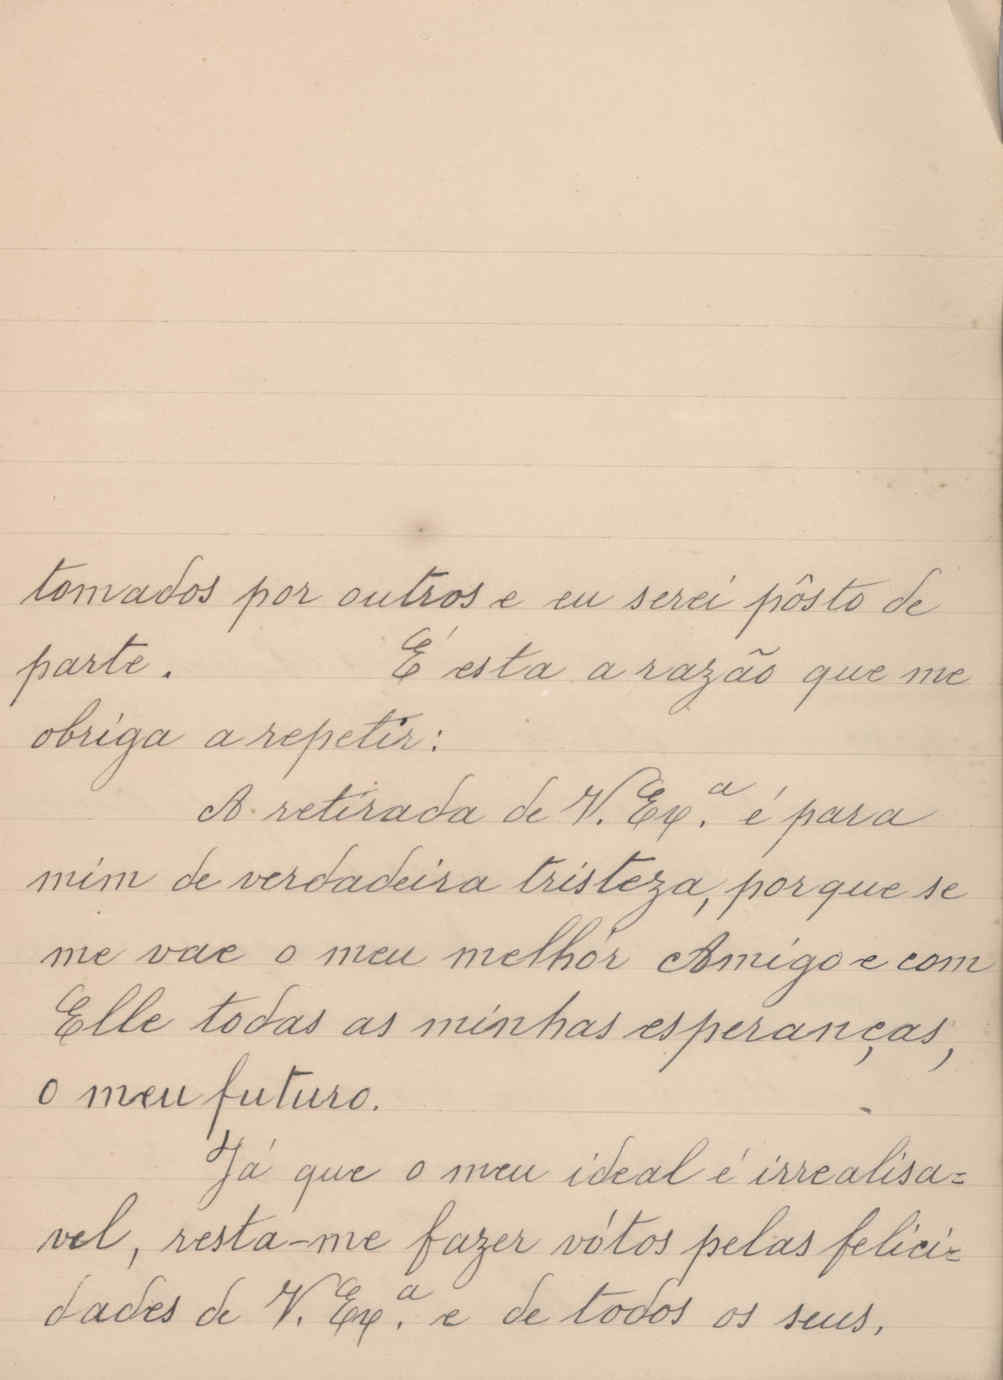 tomados por outros e eu serei pôsto de
parte. É esta a razão que me
obriga a repetir:
A retirada de V. Ex.ª é para
mim de verdadeira tristeza, porque se
me vae o meu melhór Amigo e com
Elle todas as minhas esperanças,
o meu futuro.
Já que o meu ideal é irrealisa=
vel, resta-me fazer vótos pelas felici=
dades de V. Ex.ª e de todos os seus.